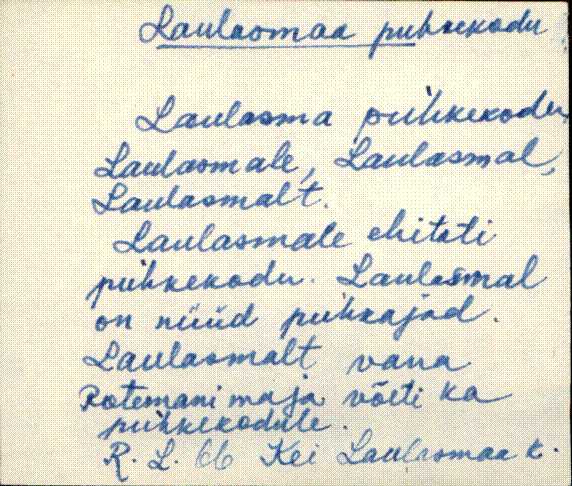 Laulasmaa puhkekodu
Laulasma puhkekodu,
Laulasmale, Laulasmal,
Laulasmalt.
Laulasmale ehitati
puhkekodu. Laulasmal
on nüüd puhkajad.
Laulasmalt vana
Rotemani maja võeti ka
puhkekodule.
R. L. 66 Kei Laulasmaa k.